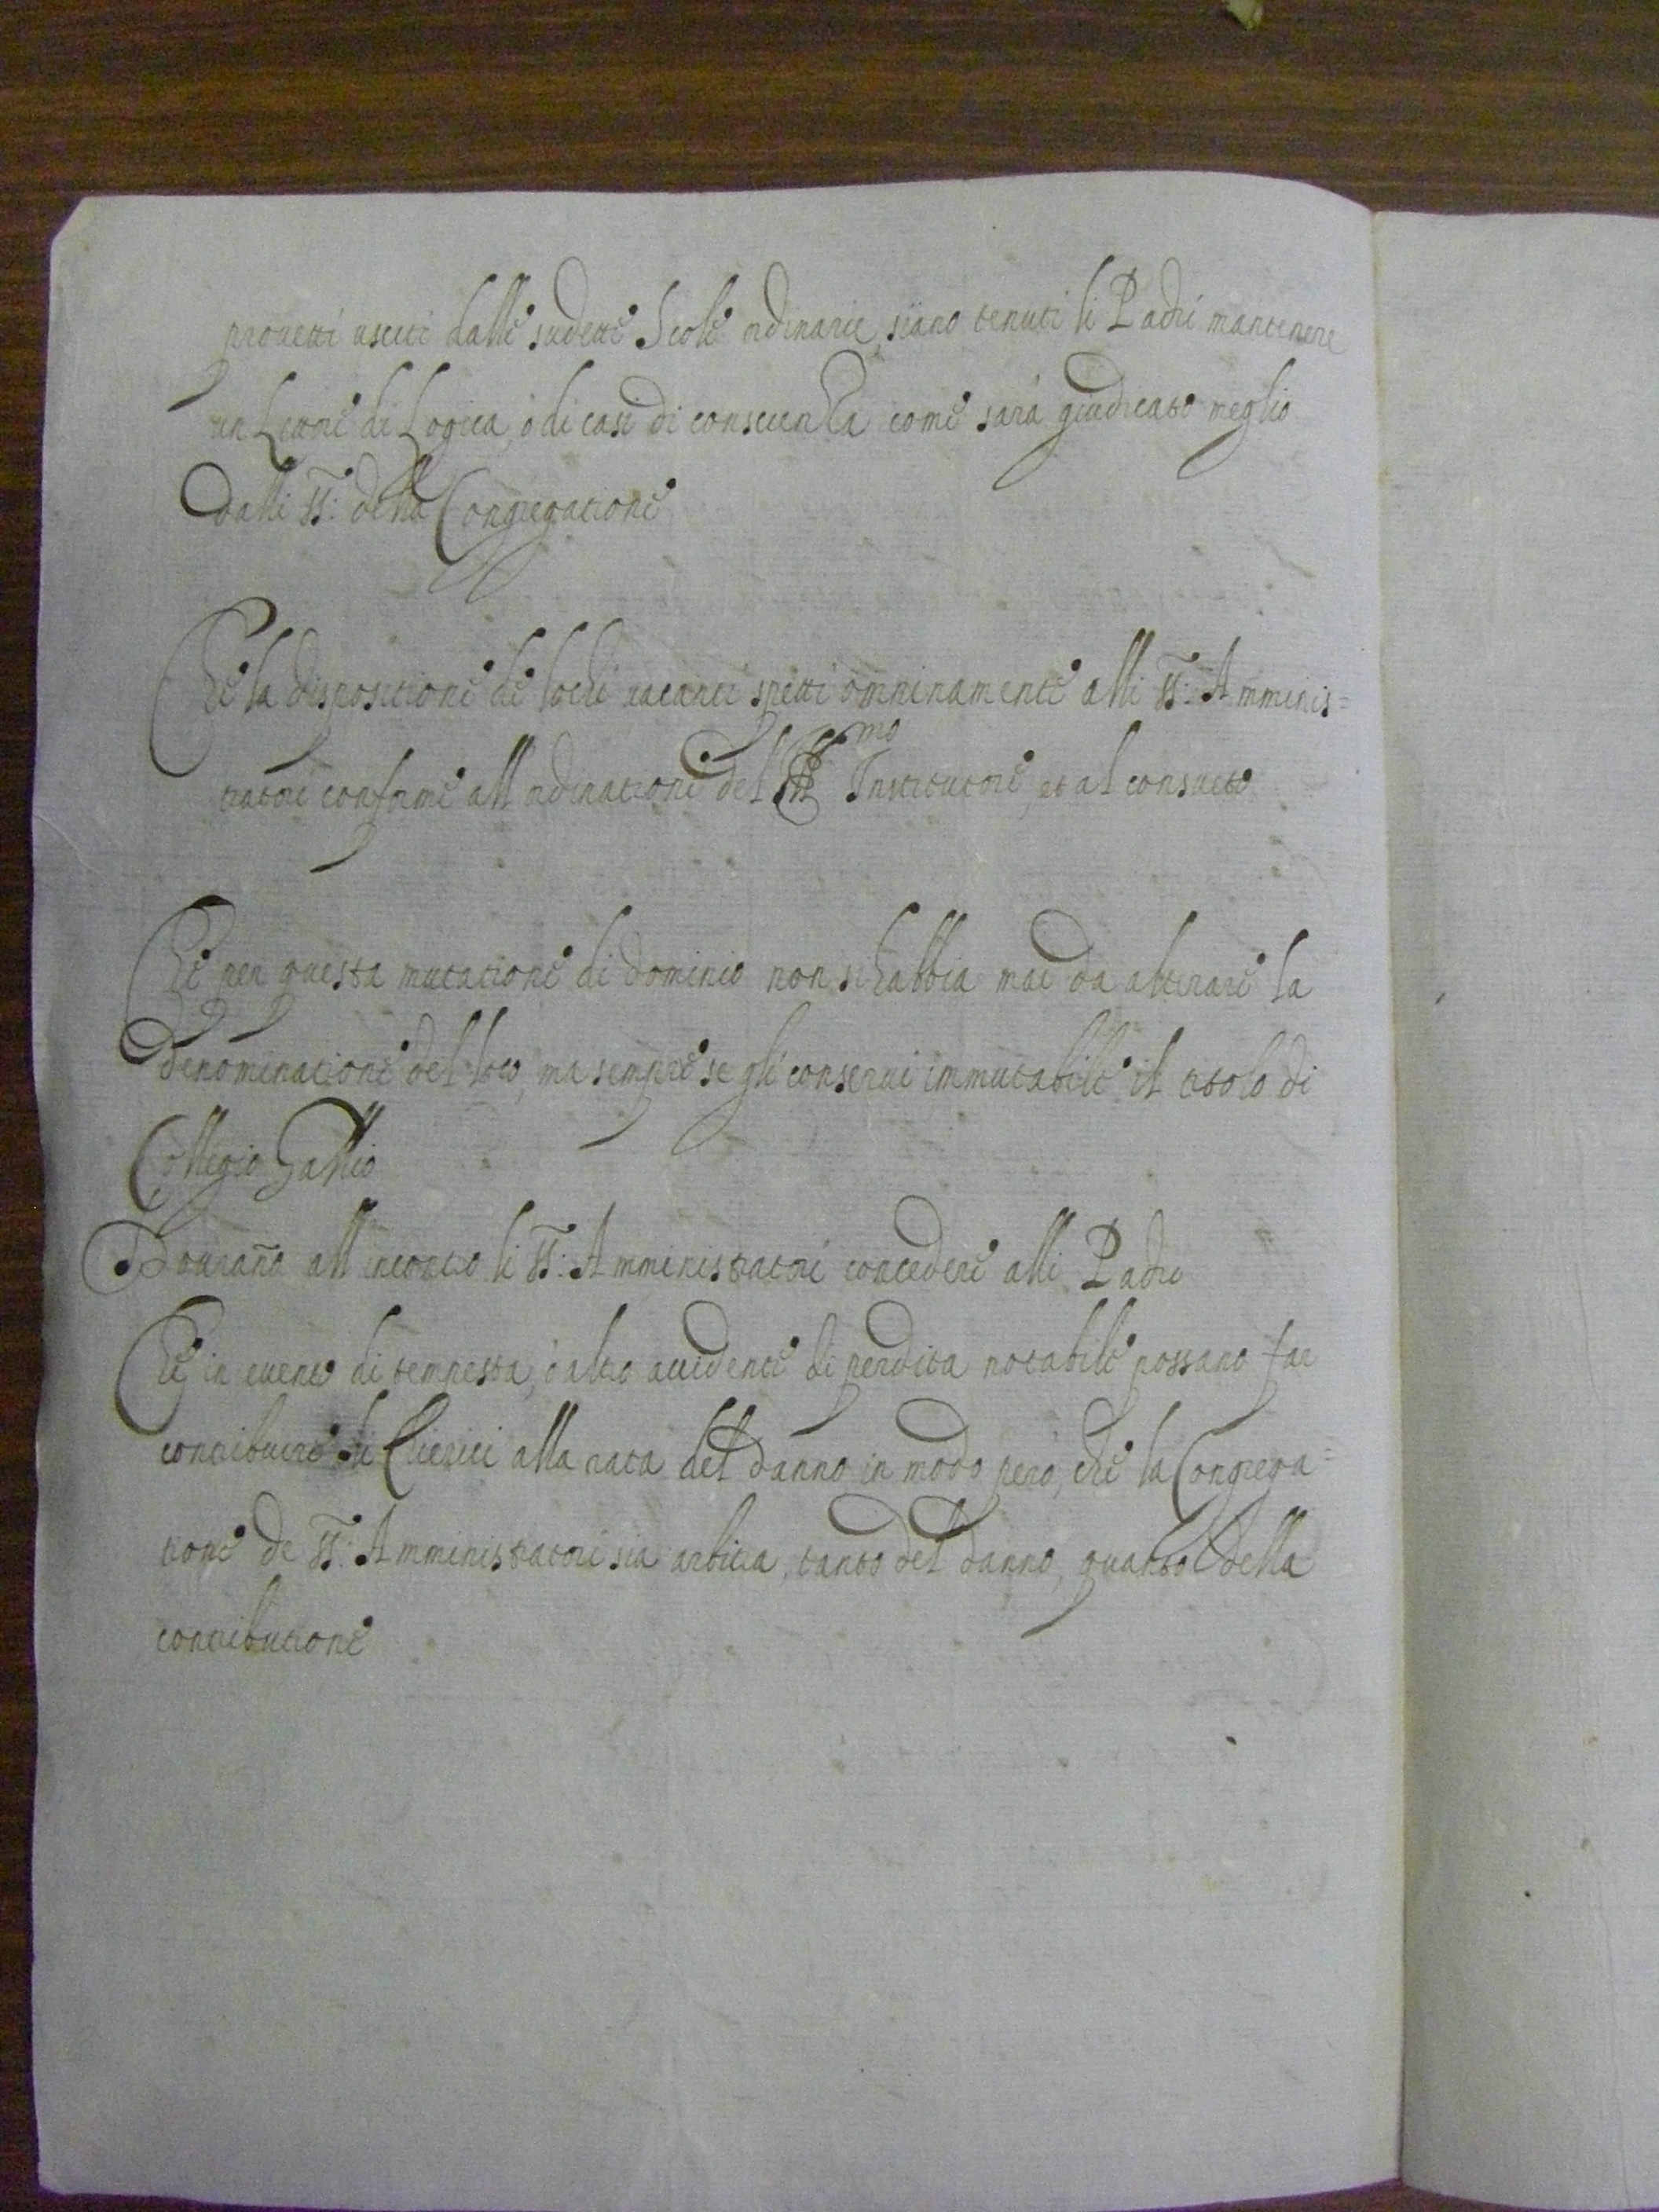 prouetti usciti dalle sudette Scole ordinarie, siano tenuti li Padri mantenere
un Lettore di Logica, ò di casi di conscienza come sarà giudicato meglio
dalli SS: della Congregatione
Che la dispositione de lochi vacanti spetti omninamente alli SS: Amminis=
tratori conforme all ordinatione del Ill mo Institutore, et al consueto
Che per questa mutatione di dominio non si habbia mai da alterare la
denominatione del loco, ma sempre se gli conserui immutabile il titolo di
Collegio Gallio
Douranno all incotro li SS: Amministratori concedere alli Padri
Che in euento di tempesta, ò altro accidente di perdita notabile possano far
contribuire li Clierici alla rata del danno in modo però, che la Congrega=
tione de SS: Amministratori sia arbitra, tanto del danno, quanto della
contributione